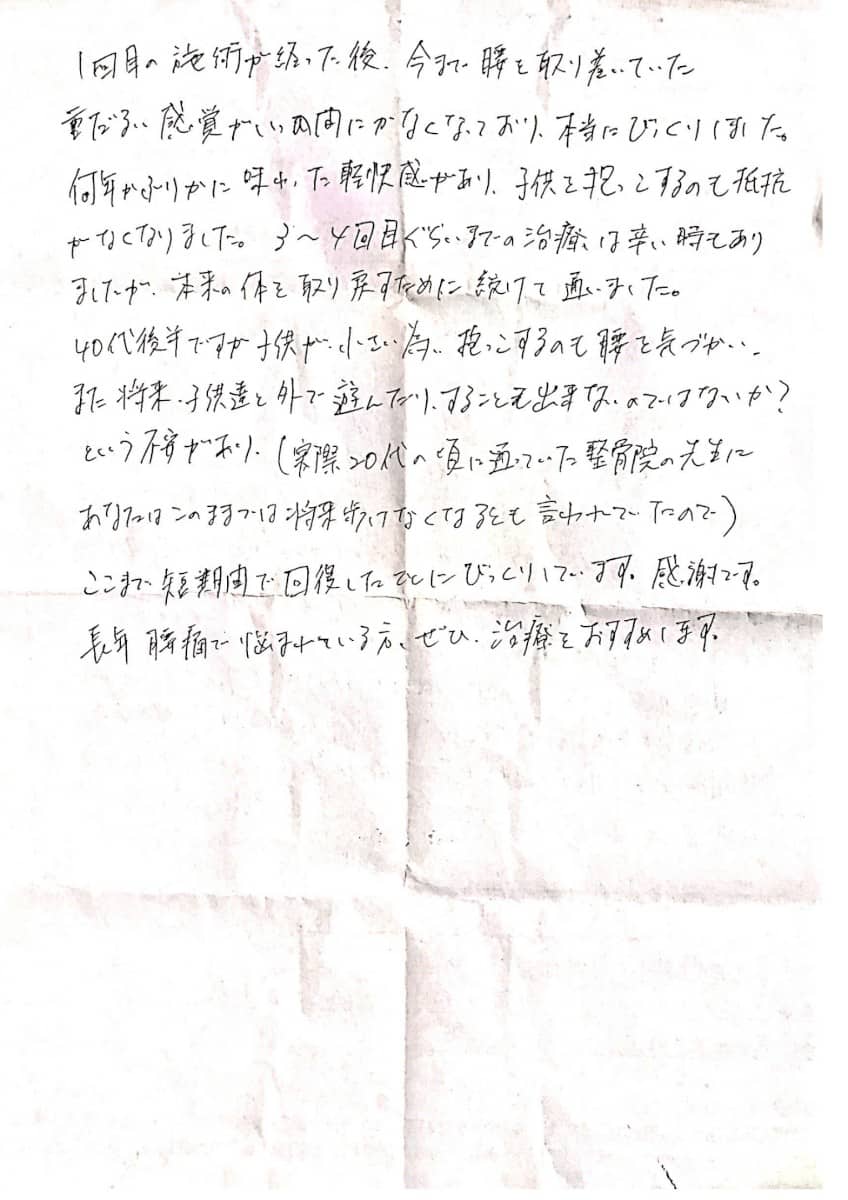 1回目の施術が終った後、今まで腰を取り巻いていた
重だるい感覚がいつの間にかなくなっており、本当にびっくりしました。
何年かぶりかに味わった軽快感があり、子供を抱っこするのも抵抗
がなくなりました。3〜4回目ぐらいまでの治療は辛い時もあり
ましたが、本来の体を取り戻すために続けて通いました。
40代後半ですが子供が小さい為、抱っこするのも腰を気づかい、
また将来、子供達と外で遊んだりすることも出来ないのではないか?
という不安があり、(実際20代の頃に通っていた整骨院の先生に
あなたはこのままでは将来歩けなくなるとも言われていたので)
ここまで短期間で回復したことにびっくりしています。感謝です。
長年腰痛で悩まれている方、ぜひ、治療をおすすめします。